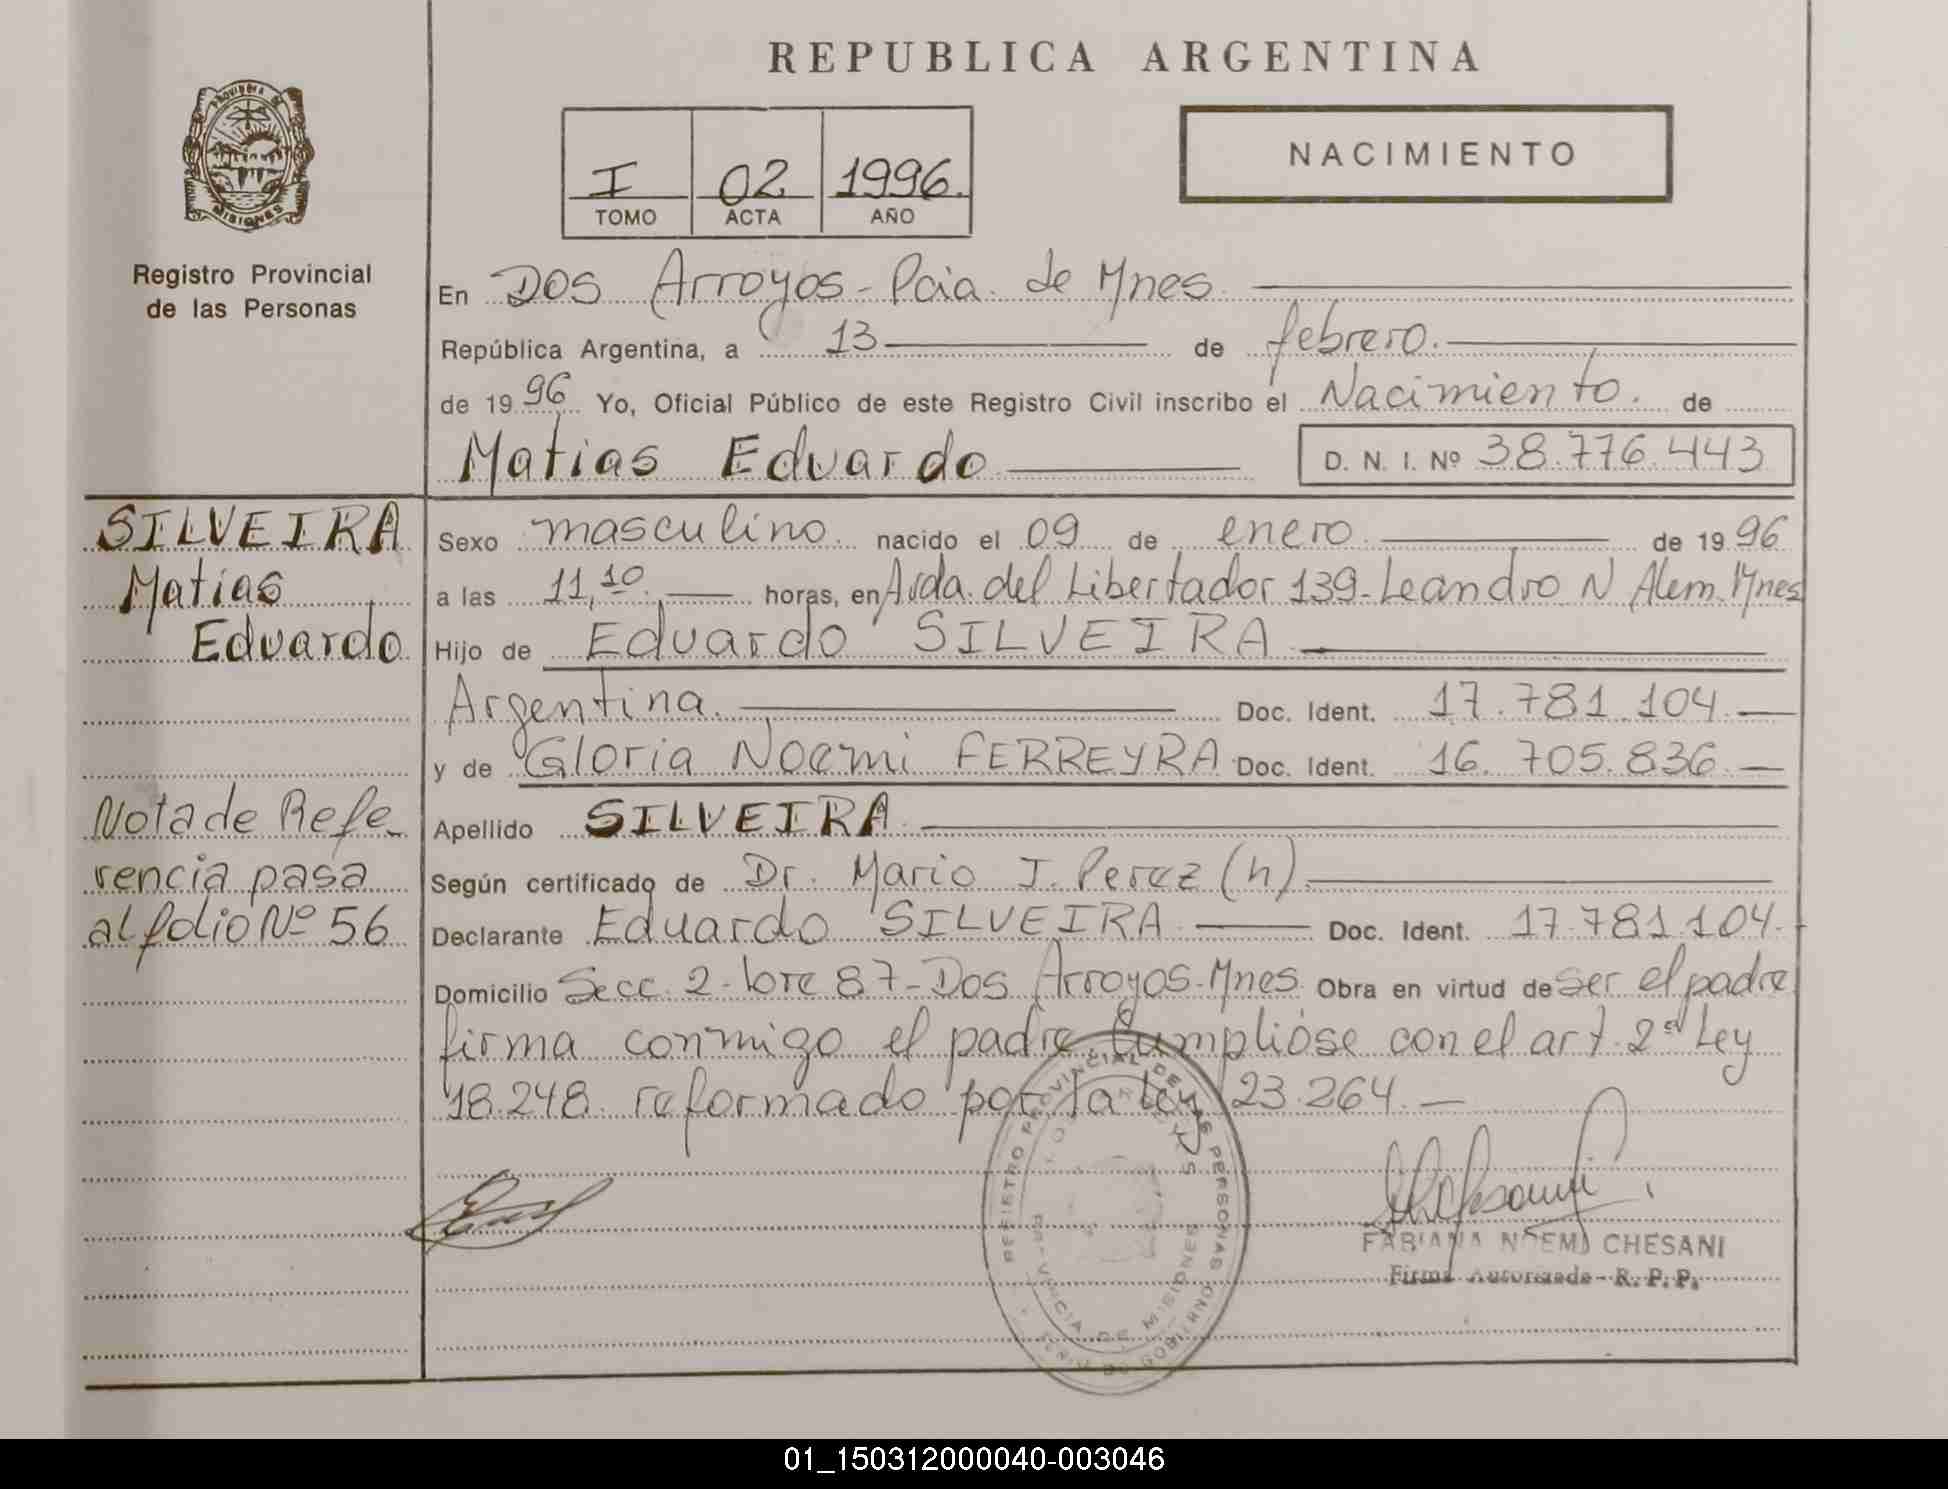 REPUBLICA ARGENTINA
PROVINCIA DE
MISIONES
Registro Provincial
de las Personas
I 02 1996.
TOMO ACTA AÑO
NACIMIENTO
En Dos Arroyos - Pcia. de Mnes.
República Argentina, a 13 de febrero.
de 1996 Yo, Oficial Público de este Registro Civil inscribo el Nacimiento. de
Matias Eduardo D. N. I. Nº 38.776.443
SILVEIRA
Matias
Eduardo
Nota de Refe
rencia pasa
al folio Nº 56
Sexo masculino. nacido el 09 de enero de 1996
a las 11,10 horas, en Avda. del Libertador 139 - Leandro N Alem. Mnes
Hijo de Eduardo SILVEIRA
Argentina. Doc. Ident. 17.781.104.
y de Gloria Noemi FERREYRA Doc. Ident. 16.705.836.
Apellido SILVEIRA
Según certificado de Dr. Mario J. Perez (h).
Declarante Eduardo SILVEIRA Doc. Ident. 17.781.104.
Domicilio Secc. 2 - lote 87 - Dos Arroyos - Mnes. Obra en virtud de ser el padre
firma conmigo el padre Cumplióse con el art. 2º Ley
18.248. reformado por la ley 23.264. —
REGISTRO PROVINCIAL DE LAS PERSONAS
PROVINCIA DE MISIONES
FABIANA NOEMI CHESANI
Firma Autorizada - R. P. P.
01_150312000040-003046